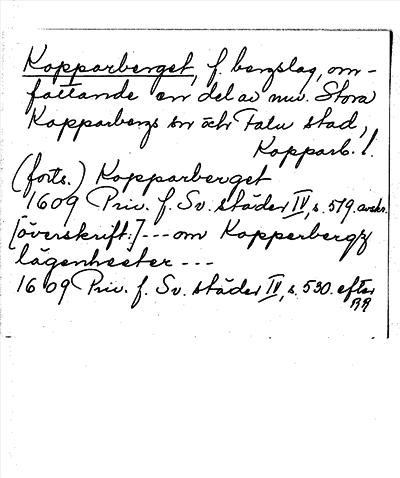 Kopparberget, f. bergslag, om-
fattande en del av nuv. Stora
Kopparbergs sn och Falu stad,
Kopparb. l.
(forts.) Kopparberget
1609 Priv. f. Sv. städer IV, s. 519. avskr.
[överskrift:] --- om Kopperbergz
lägenheeter ---
1609 Priv. f. Sv. städer IV, s. 530. efter
RR